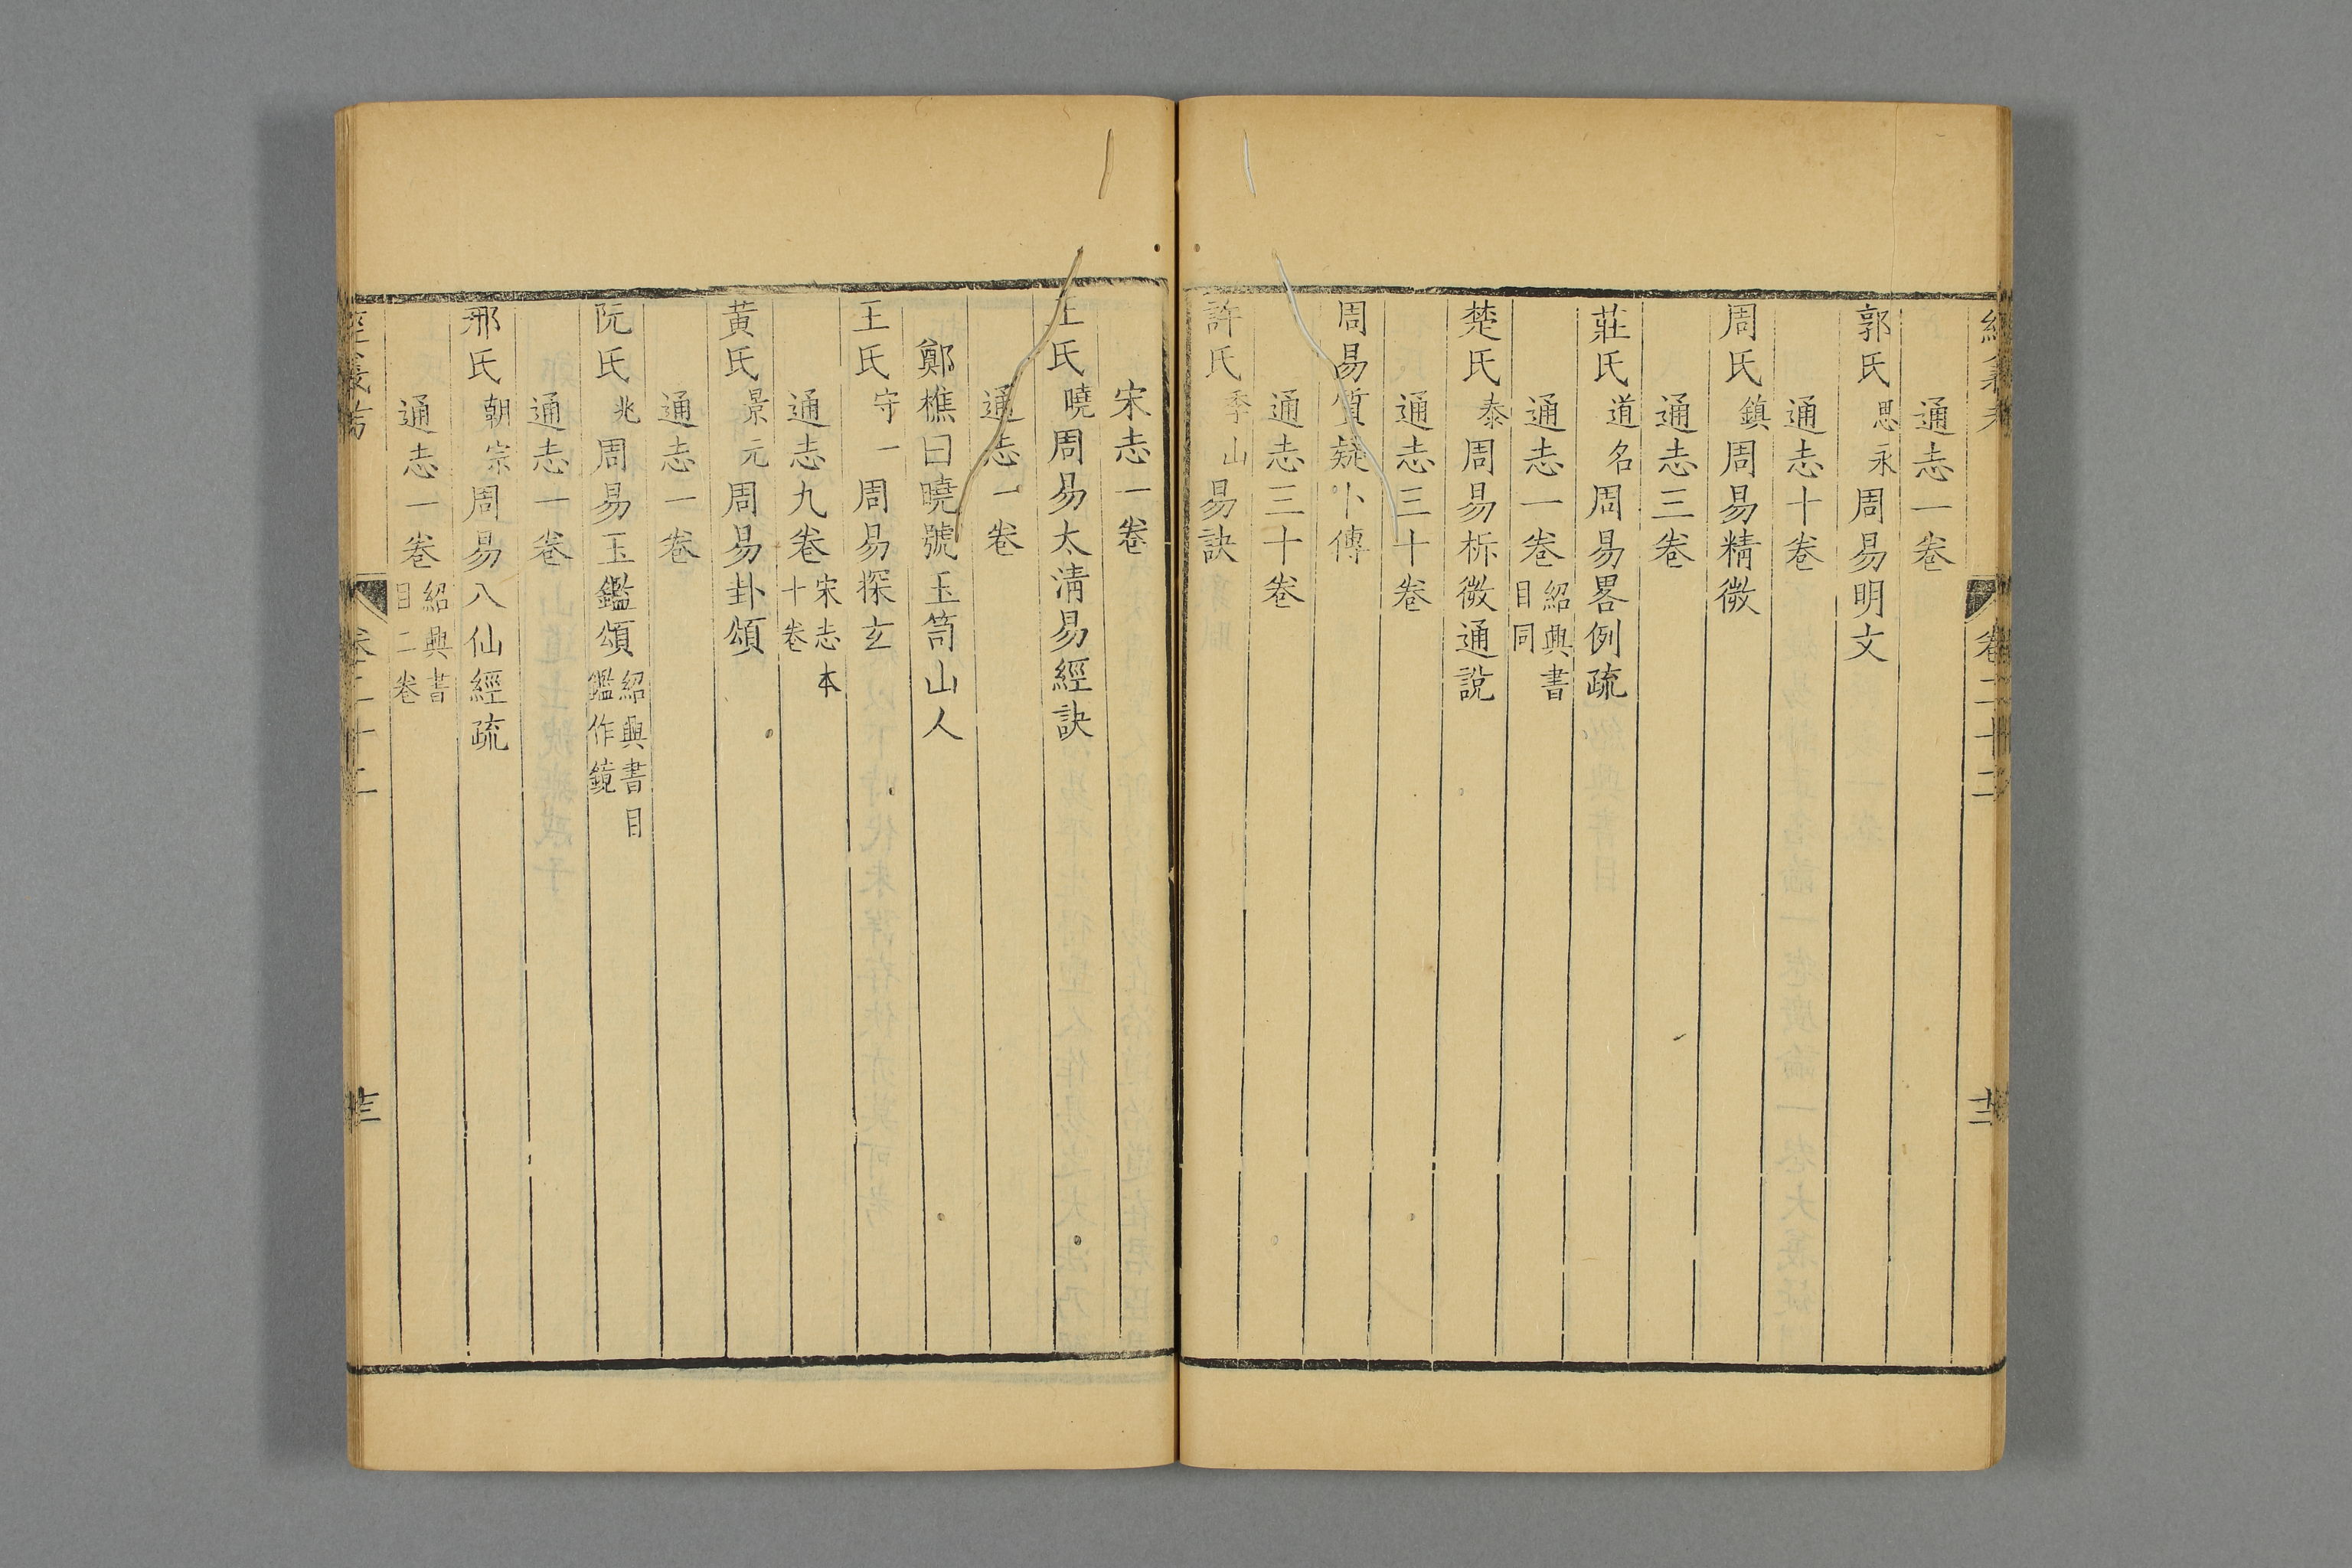 卷二十二
通志一卷
郭氏思永周易明文
通志十卷
周氏鎮周易精微
通志三卷
莊氏道名周易畧例疏
通志一卷紹興書目同
楚氏泰周易析微通說
通志三十卷
周易質疑卜傳
通志三十卷
許氏季山易訣
宋志一卷
王氏曉周易太清易經訣
通志一卷
鄭樵曰曉號玉笥山人
王氏守一周易探玄
通志九卷宋志本十卷
黃氏景元周易卦頌
通志一卷
阮氏兆周易玉鑑頌紹興書目鑑作鏡
通志一卷
邢氏朝宗周易八仙經疏
通志一卷紹興書目二卷
經義考
卷二十二